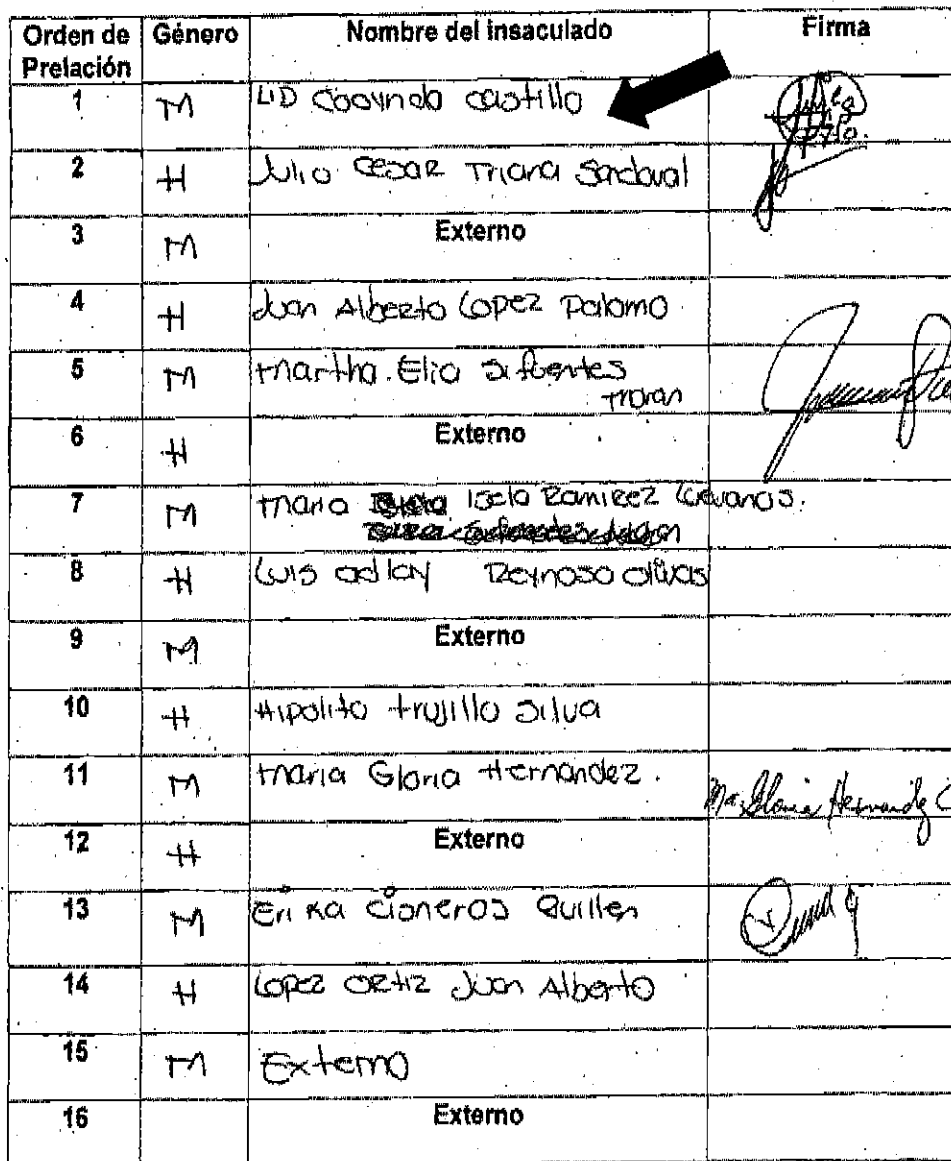 Orden de Prelación Género Nombre del Insaculado Firma
1 M LID castillo
2 H Julio cesar Triana Sandoval
3 M Externo
4 H Juan Alberto Lopez Palomo
5 M Martha Elia Sifuentes
moran
6 H Externo
7 M Maria Isela Ramirez
8 H Luis adlay Reynoso olivas
9 M Externo
10 H Hipolito trujillo Silva
11 M Maria Gloria Hernandez. Ma. Gloria Hernandez C
12 H Externo
13 M Erika Cisneros Quillen
14 H Lopez ORtiz Juan Alberto
15 M Externo
16 Externo